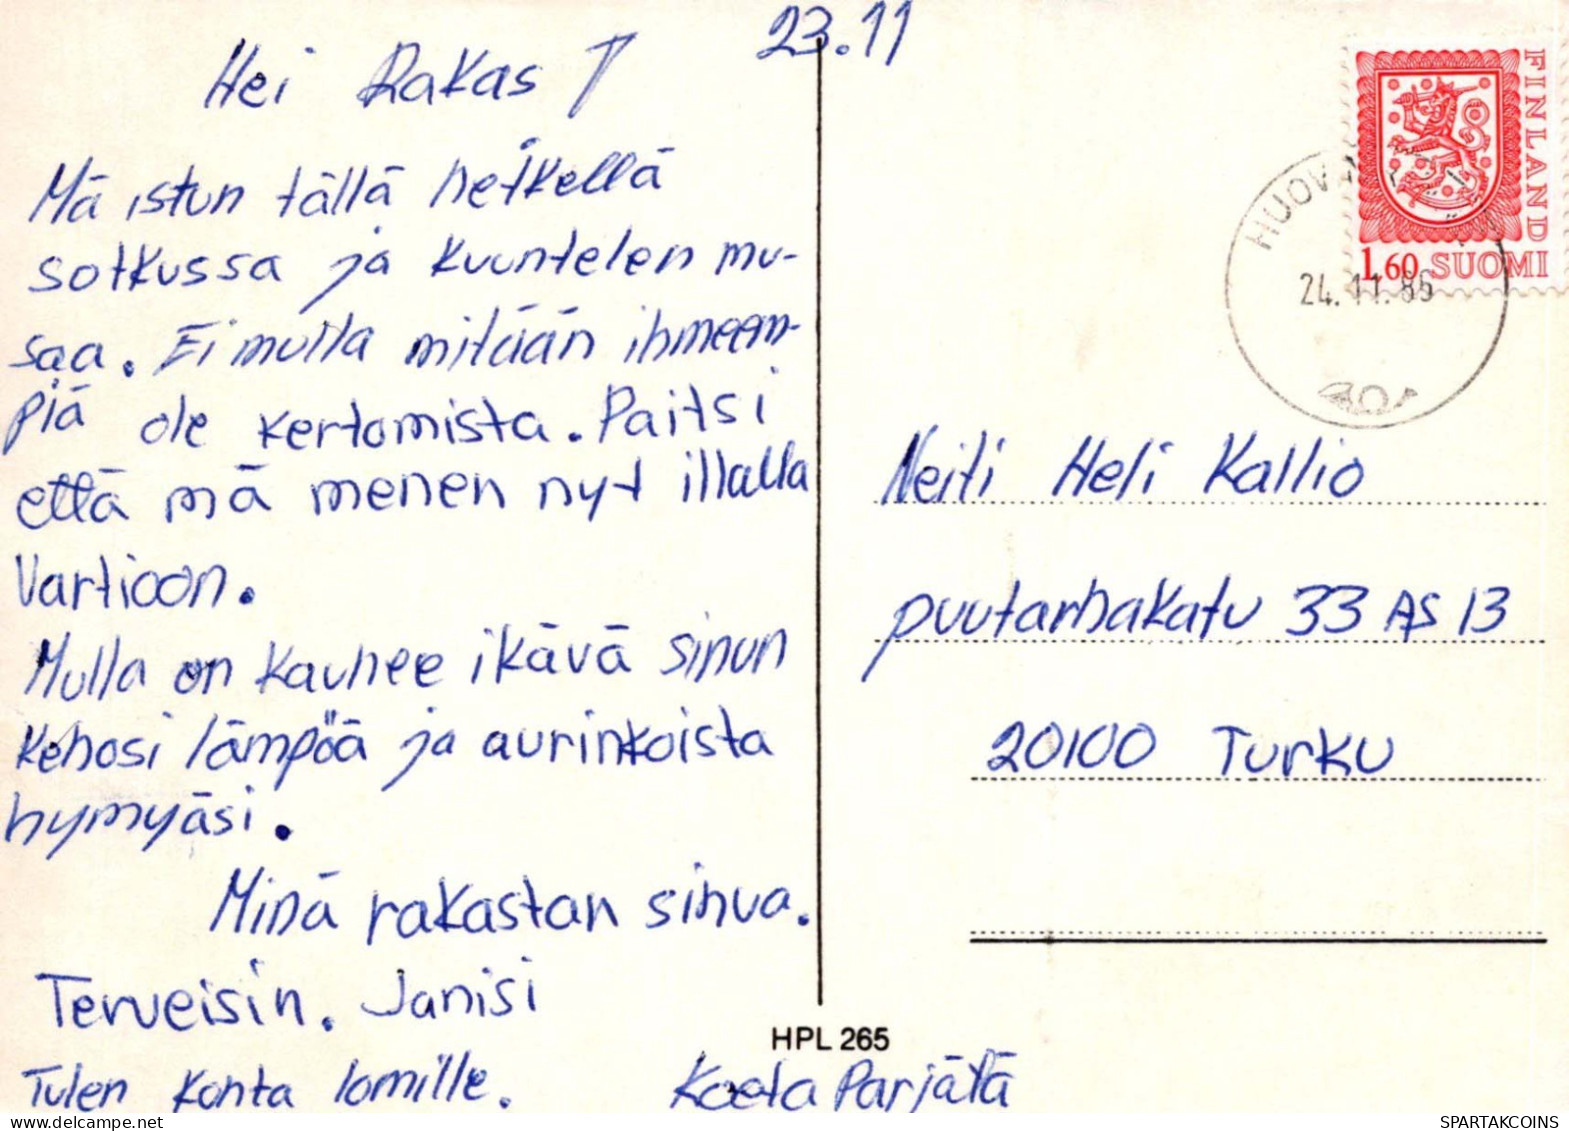 23.11
Hei Rakas!
Mä istun tällä hetkellä
sotkussa ja kuuntelen mu-
saa. Ei mulla mitään ihmeem-
piä ole kertomista. Paitsi
että mä menen nyt illalla
Vartioon.
Mulla on kauhee ikävä sinun
kehosi lämpöä ja aurinkoista
hymyäsi.
Minä rakastan sinua.
Terveisin. Janisi
Tulen kohta lomille. Koeta Pärjätä
FINLAND
1,60 SUOMI
24.11.86
Neiti Heli Kallio
puutarhakatu 33 AS 13
20100 Turku
HPL 265
SPARTAKCOINS
delcampe.net